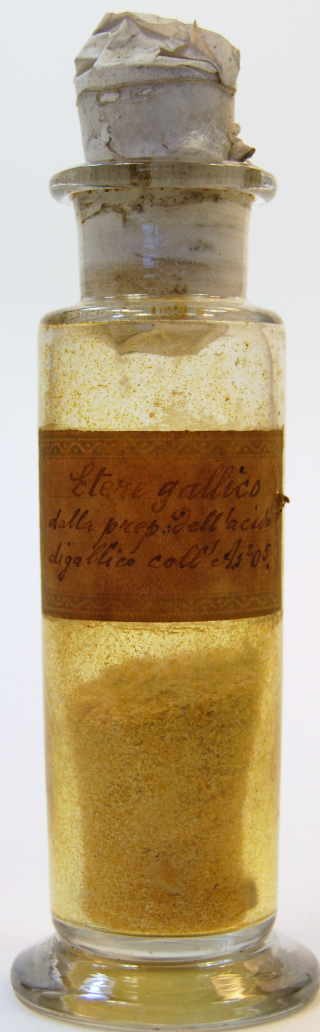 Etere gallico
dalla prep: dell'acido
digallico coll' As²O⁵.